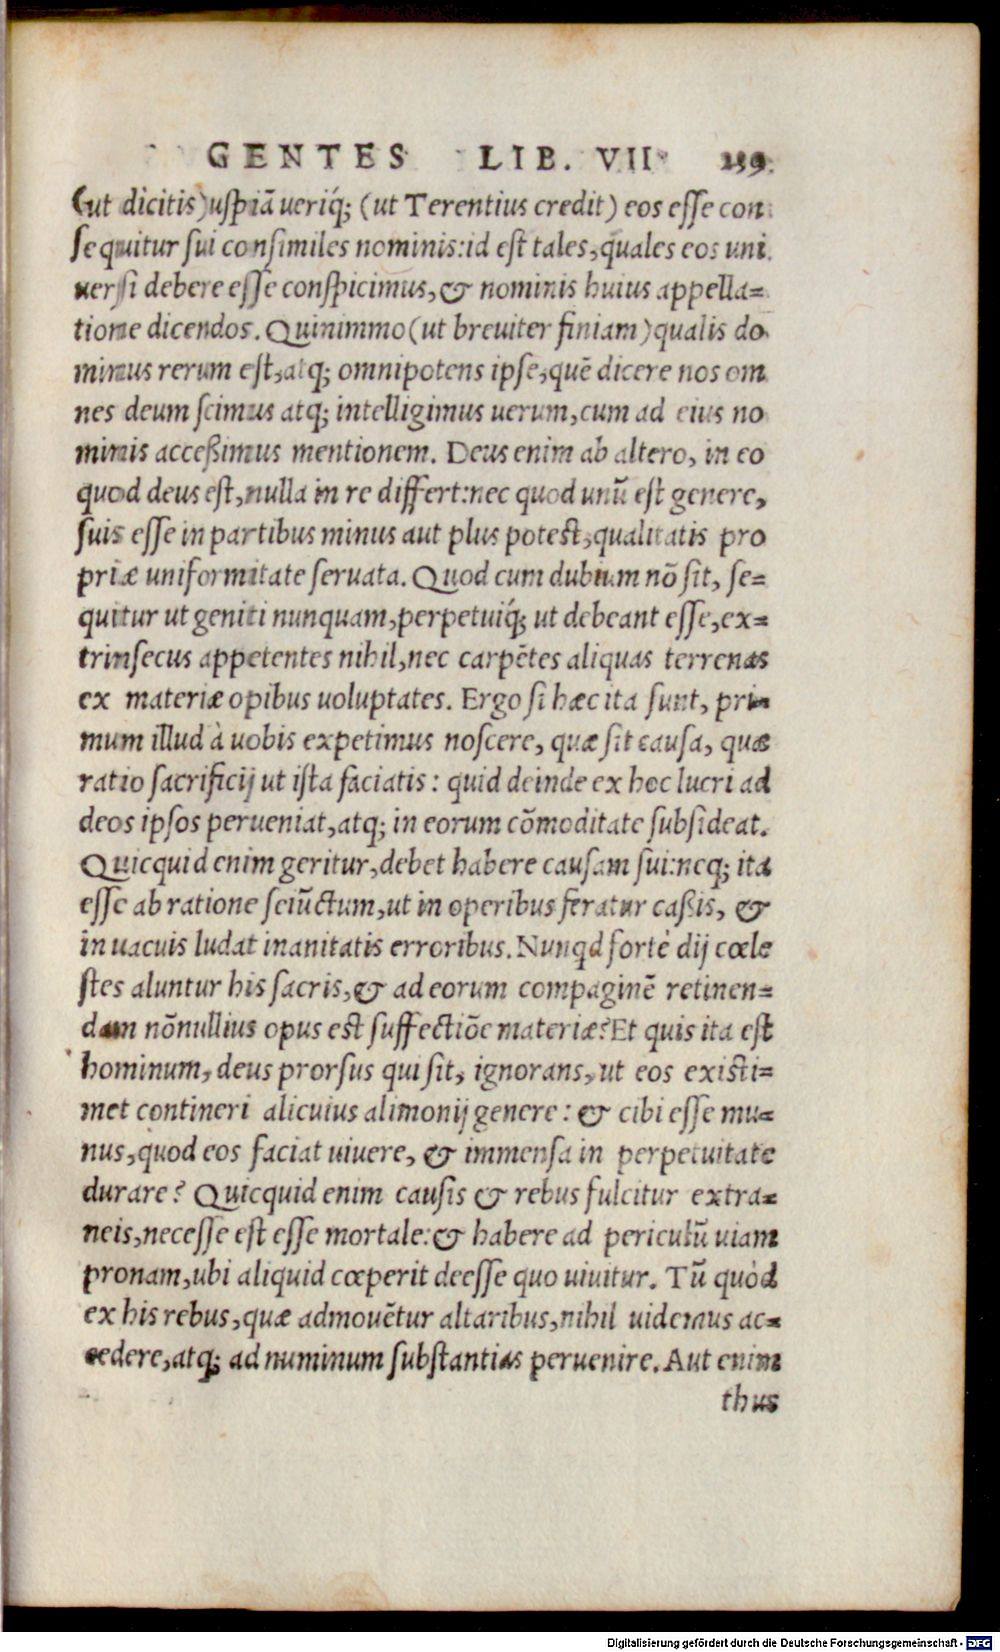 GENTES LIB. VII 259.
(ut dicitis) uspiā ueriq́; (ut Terentius credit) eos esse con
sequitur sui consimiles nominis: id est tales, quales eos uni
uersi debere esse conspicimus, & nominis huius appella=
tione dicendos. Quinimmo (ut breuiter finiam) qualis do
minus rerum est, atq; omnipotens ipse, quē dicere nos om
nes deum scimus atq; intelligimus uerum, cum ad eius no
minis acceßimus mentionem. Deus enim ab altero, in eo
quod deus est, nulla in re differt: nec quod unū est genere,
suis esse in partibus minus aut plus potest, qualitatis pro
priæ uniformitate seruata. Quod cum dubium nō sit, se=
quitur ut geniti nunquam, perpetuiq́; ut debeant esse, ex=
trinsecus appetentes nihil, nec carpētes aliquas terrenas
ex materiæ opibus uoluptates. Ergo si hæc ita sunt, pri=
mum illud à uobis expetimus noscere, quæ sit causa, quæ
ratio sacrificij ut ista faciatis: quid deinde ex hoc lucri ad
deos ipsos perueniat, atq; in eorum cōmoditate subsideat.
Quicquid enim geritur, debet habere causam sui: neq; ita
esse ab ratione seiūctum, ut in operibus feratur caßis, &
in uacuis ludat inanitatis erroribus. Nunqd fortè dij cœle
stes aluntur his sacris, & ad eorum compaginē retinen=
dam nōnullius opus est suffectiōe materiæ? Et quis ita est
hominum, deus prorsus qui sit, ignorans, ut eos existi=
met contineri alicuius alimonij genere: & cibi esse mu=
nus, quod eos faciat uiuere, & immensa in perpetuitate
durare? Quicquid enim causis & rebus fulcitur extra=
neis, necesse est esse mortale: & habere ad periculū uiam
pronam, ubi aliquid cœperit deesse quo uiuitur. Tū quòd
ex his rebus, quæ admouētur altaribus, nihil uidemus ac=
cedere, atq; ad numinum substantias peruenire. Aut enim
thus
Digitalisierung gefördert durch die Deutsche Forschungsgemeinschaft - DFG